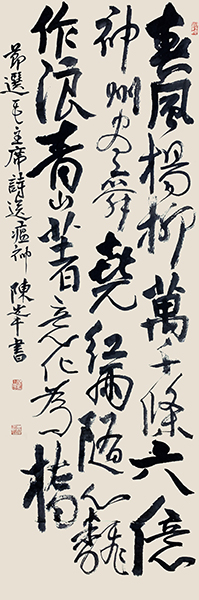 春風楊柳萬千條六億
神州盡舜堯紅雨隨心翻
作浪青山著意化為橋
節選毛主席詩送瘟神 陳書